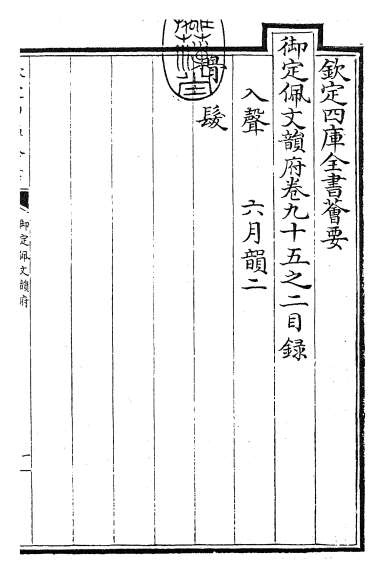 欽定四庫全書薈要
御定佩文韻府卷九十五之二目録
入聲 六月韻二
髮
御定佩文韻府